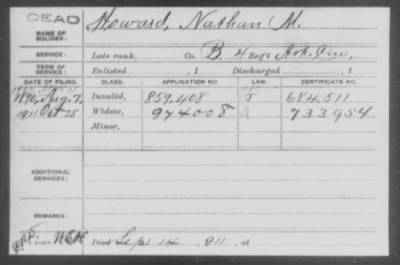 DEAD
NAME OF SOLDIER: Howard, Nathan M.
SERVICE: Late rank, Co. B, 4 Reg't Ark. Inv.
TERM OF SERVICE: Enlisted , 1 Discharged , 1
DATE OF FILING. CLASS. APPLICATION NO. LAW. CERTIFICATE NO.
1890, Aug. 7, Invalid, 859.408 J 684.511
1911 Oct 28 Widow, 974008 733954
Minor,
ADDITIONAL SERVICES:
REMARKS:
Died Sept 14 911, at